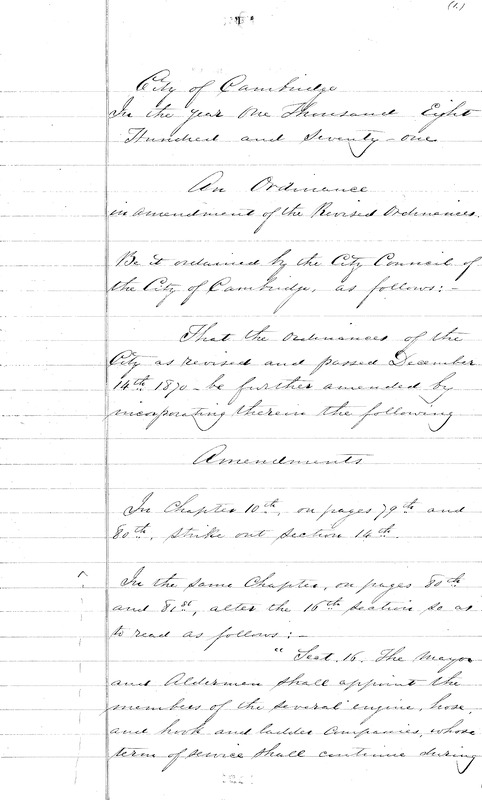 (1.)
City of Cambridge
In the year One Thousand Eight
Hundred and Seventy-one
An Ordinance
in amendment of the Revised Ordinances.
Be it ordained by the City Council of
the City of Cambridge, as follows:-
That the ordinances of the
City as revised and passed December
14th 1870 - be further amended by
incorporating therein the following
Amendments
In Chapter 10th, on pages 79th and
80th, strike out section 14th.
In the same Chapter, on pages 80th
and 81st, alter the 16th section so as
to read as follows:-
"Sect. 16. The Mayor
and Aldermen shall appoint the
members of the several engine, hose,
and hook and ladder companies, whose
term of service shall continue during